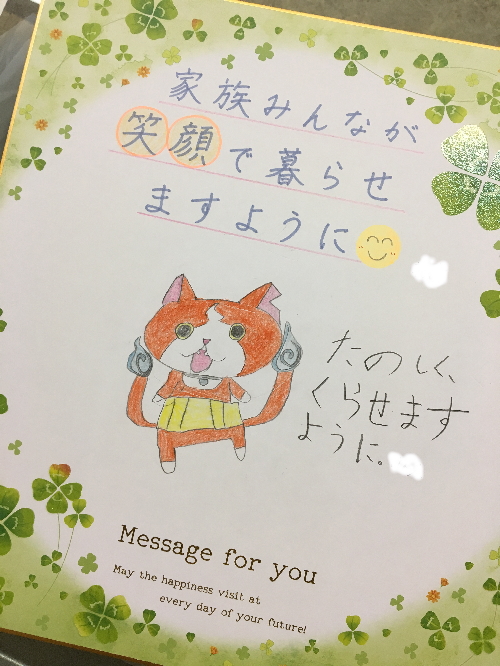 家族みんなが
笑顔で暮らせ
ますように
たのしく、
くらせます
ように。
Message for you
May the happiness visit at
every day of your future!